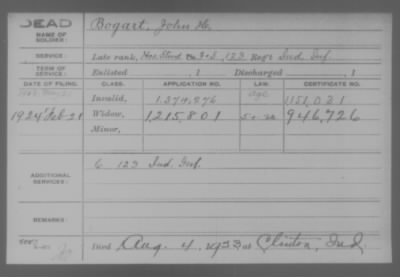 DEAD
NAME OF SOLDIER: Bogart, John H.
SERVICE: Late rank, Hos. Stwd Co. F & S, 123 Reg't Ind. Inf.
TERM OF SERVICE: Enlisted , 1 Discharged , 1
DATE OF FILING. CLASS. APPLICATION NO. LAW. CERTIFICATE NO.
Invalid, 1.374.276 age 1151,031
1924 Feb 21 Widow, 1,215,801 946,726
Minor,
ADDITIONAL SERVICES: 6 123 Ind. Inf.
REMARKS:
Died Aug. 4, 1923 at Clinton, Ind.